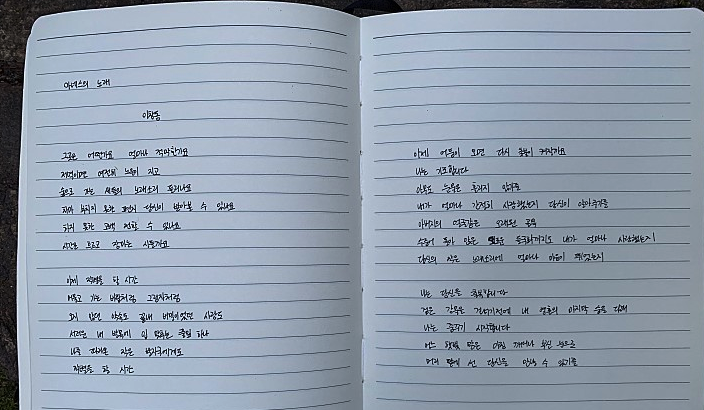 아네스의 노래
이창동
그곳은 어떤가요 얼마나 적막한가요
저녁이면 여전히 노을이 지고
숲으로 가는 새들의 노래소리 들리나요
차마 부치지 못한 편지 당신이 받아볼 수 있나요
하지 못한 고백 전할 수 있나요
시간은 흐르고 장미는 시들까요
이제 작별을 할 시간
머물고 가는 바람처럼 그림자처럼
오지 않던 약속도 끝내 비밀이었던 사랑도
서러운 내 발목에 입 맞추는 풀잎 하나
나를 따라온 작은 발자국에게도
작별을 할 시간
이제 어둠이 오면 다시 촛불이 켜질까요
나는 기도합니다
아무도 눈물은 흘리지 않기를
내가 얼마나 간절히 사랑했는지 당신이 알아주기를
아버지의 얼굴같은 오래된 골목
수줍어 돌아 앉은 외로운 들국화까지도 내가 얼마나 사랑했는지
당신의 작은 노래소리에 얼마나 가슴이 뛰었는지
나는 당신을 축복합니다
검은 강물을 건너기전에 내 영혼의 마지막 숨을 다해
나는 꿈꾸기 시작합니다
어느 햇빛 맑은 아침 깨어나 부신 눈으로
머리 맡에 선 당신을 만날 수 있기를